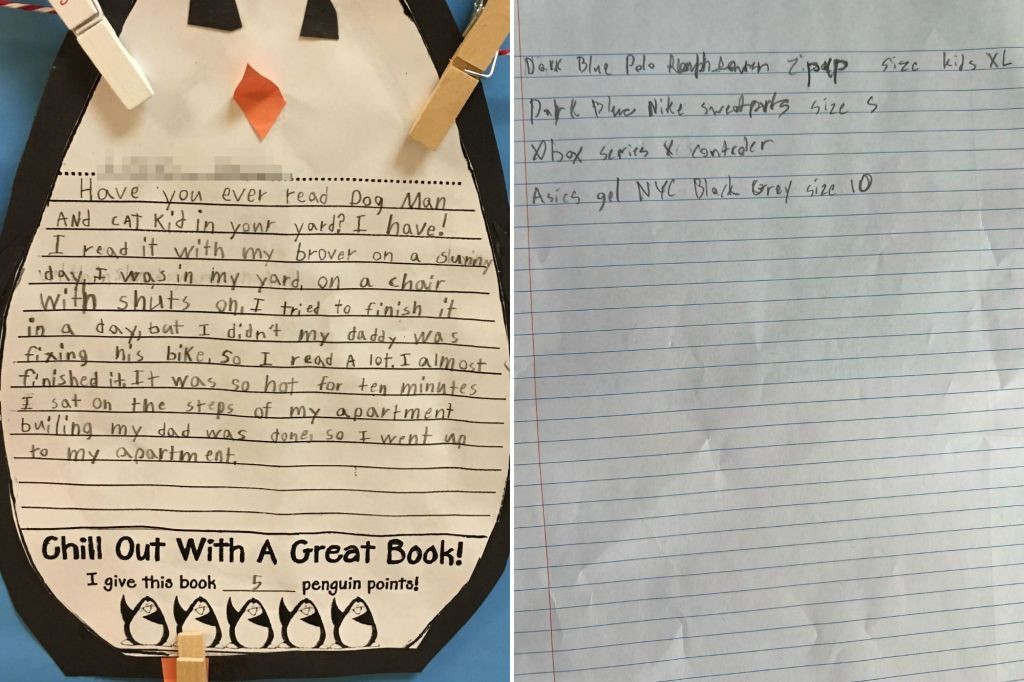 Have you ever read Dog Man
AND CAT Kid in your yard? I have!
I read it with my brover on a slunny
day, I was in my yard, on a chair
with shuts on, I tried to finish it
in a day, but I didn't my daddy was
fixing his bike, So I read A lot. I almost
finished it. It was so hot for ten minutes
I sat on the steps of my apartment
builing my dad was done, so I went up
to my apartment.
Chill Out With A Great Book!
I give this book 5 penguin points!
Dark Blue Polo zipup size kids XL
Dark Blue Nike sweatparts size S
Xbox series X contceler
Asics gel NYC Black Grey size 10